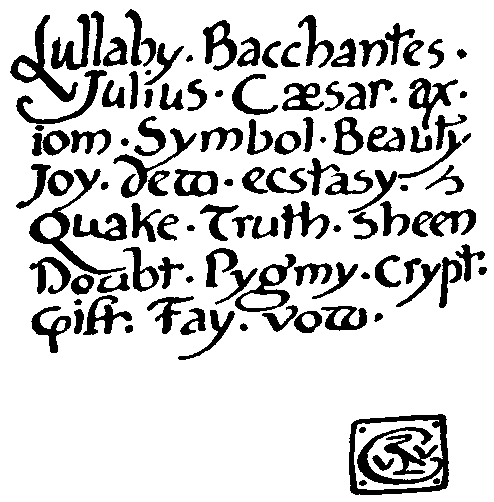 Lullaby. Bacchantes.
Julius. Cæsar. ax.
iom. Symbol. Beauty
Joy. dew. ecstasy.
Quake. Truth. Sheen
Doubt. Pygmy. Crypt.
Gift. Fay. vow.